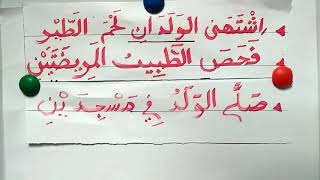 اِشْتَهَى الوَلَدَانِ لَحْمَ الطَّيْرِ
فَحَصَ الطَّبِيبُ المَرِيضَتَيْنِ
صَلَّى الوَلَدُ فِي مَسْجِدَيْنِ